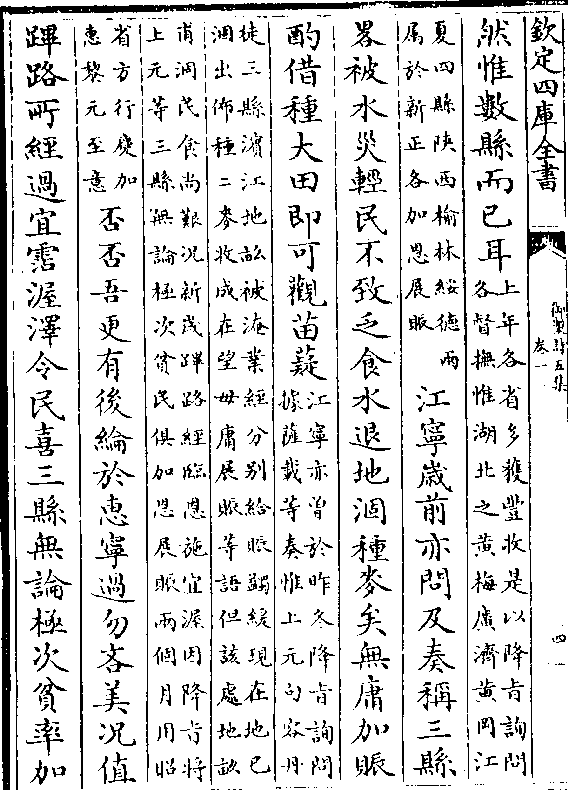 欽定四庫全書
御製詩五集
卷一
四
然惟數縣而已耳
上年各省多獲豐收是以降㫖詢問
各督撫惟湖北之黄梅廣濟黄岡江
夏四縣陜西榆林綏德兩
屬於新正各加恩展賑
江寧嵗前亦問及奏稱三縣
畧被水災輕民不致乏食水退地涸種麥矣無庸加賑
酌借種大田即可觀苗薿
江寧亦曽於昨冬降㫖詢問
據薩載等奏惟上元句容丹
徒三縣濱江地畝被淹業經分别給賑蠲緩現在地已
涸出佈種二麥收成在望毋庸展賑等語但該處地畝
甫涸民食尚艱况新嵗蹕路經臨恩施宜渥因降㫖將
上元等三縣無論極次貧民俱加恩展賑兩個月用昭
省方行慶加
惠黎元至意
否否吾更有後綸於惠寧過勿吝美况值
蹕路所經過宜霑渥澤令民喜三縣無論極次貧率加